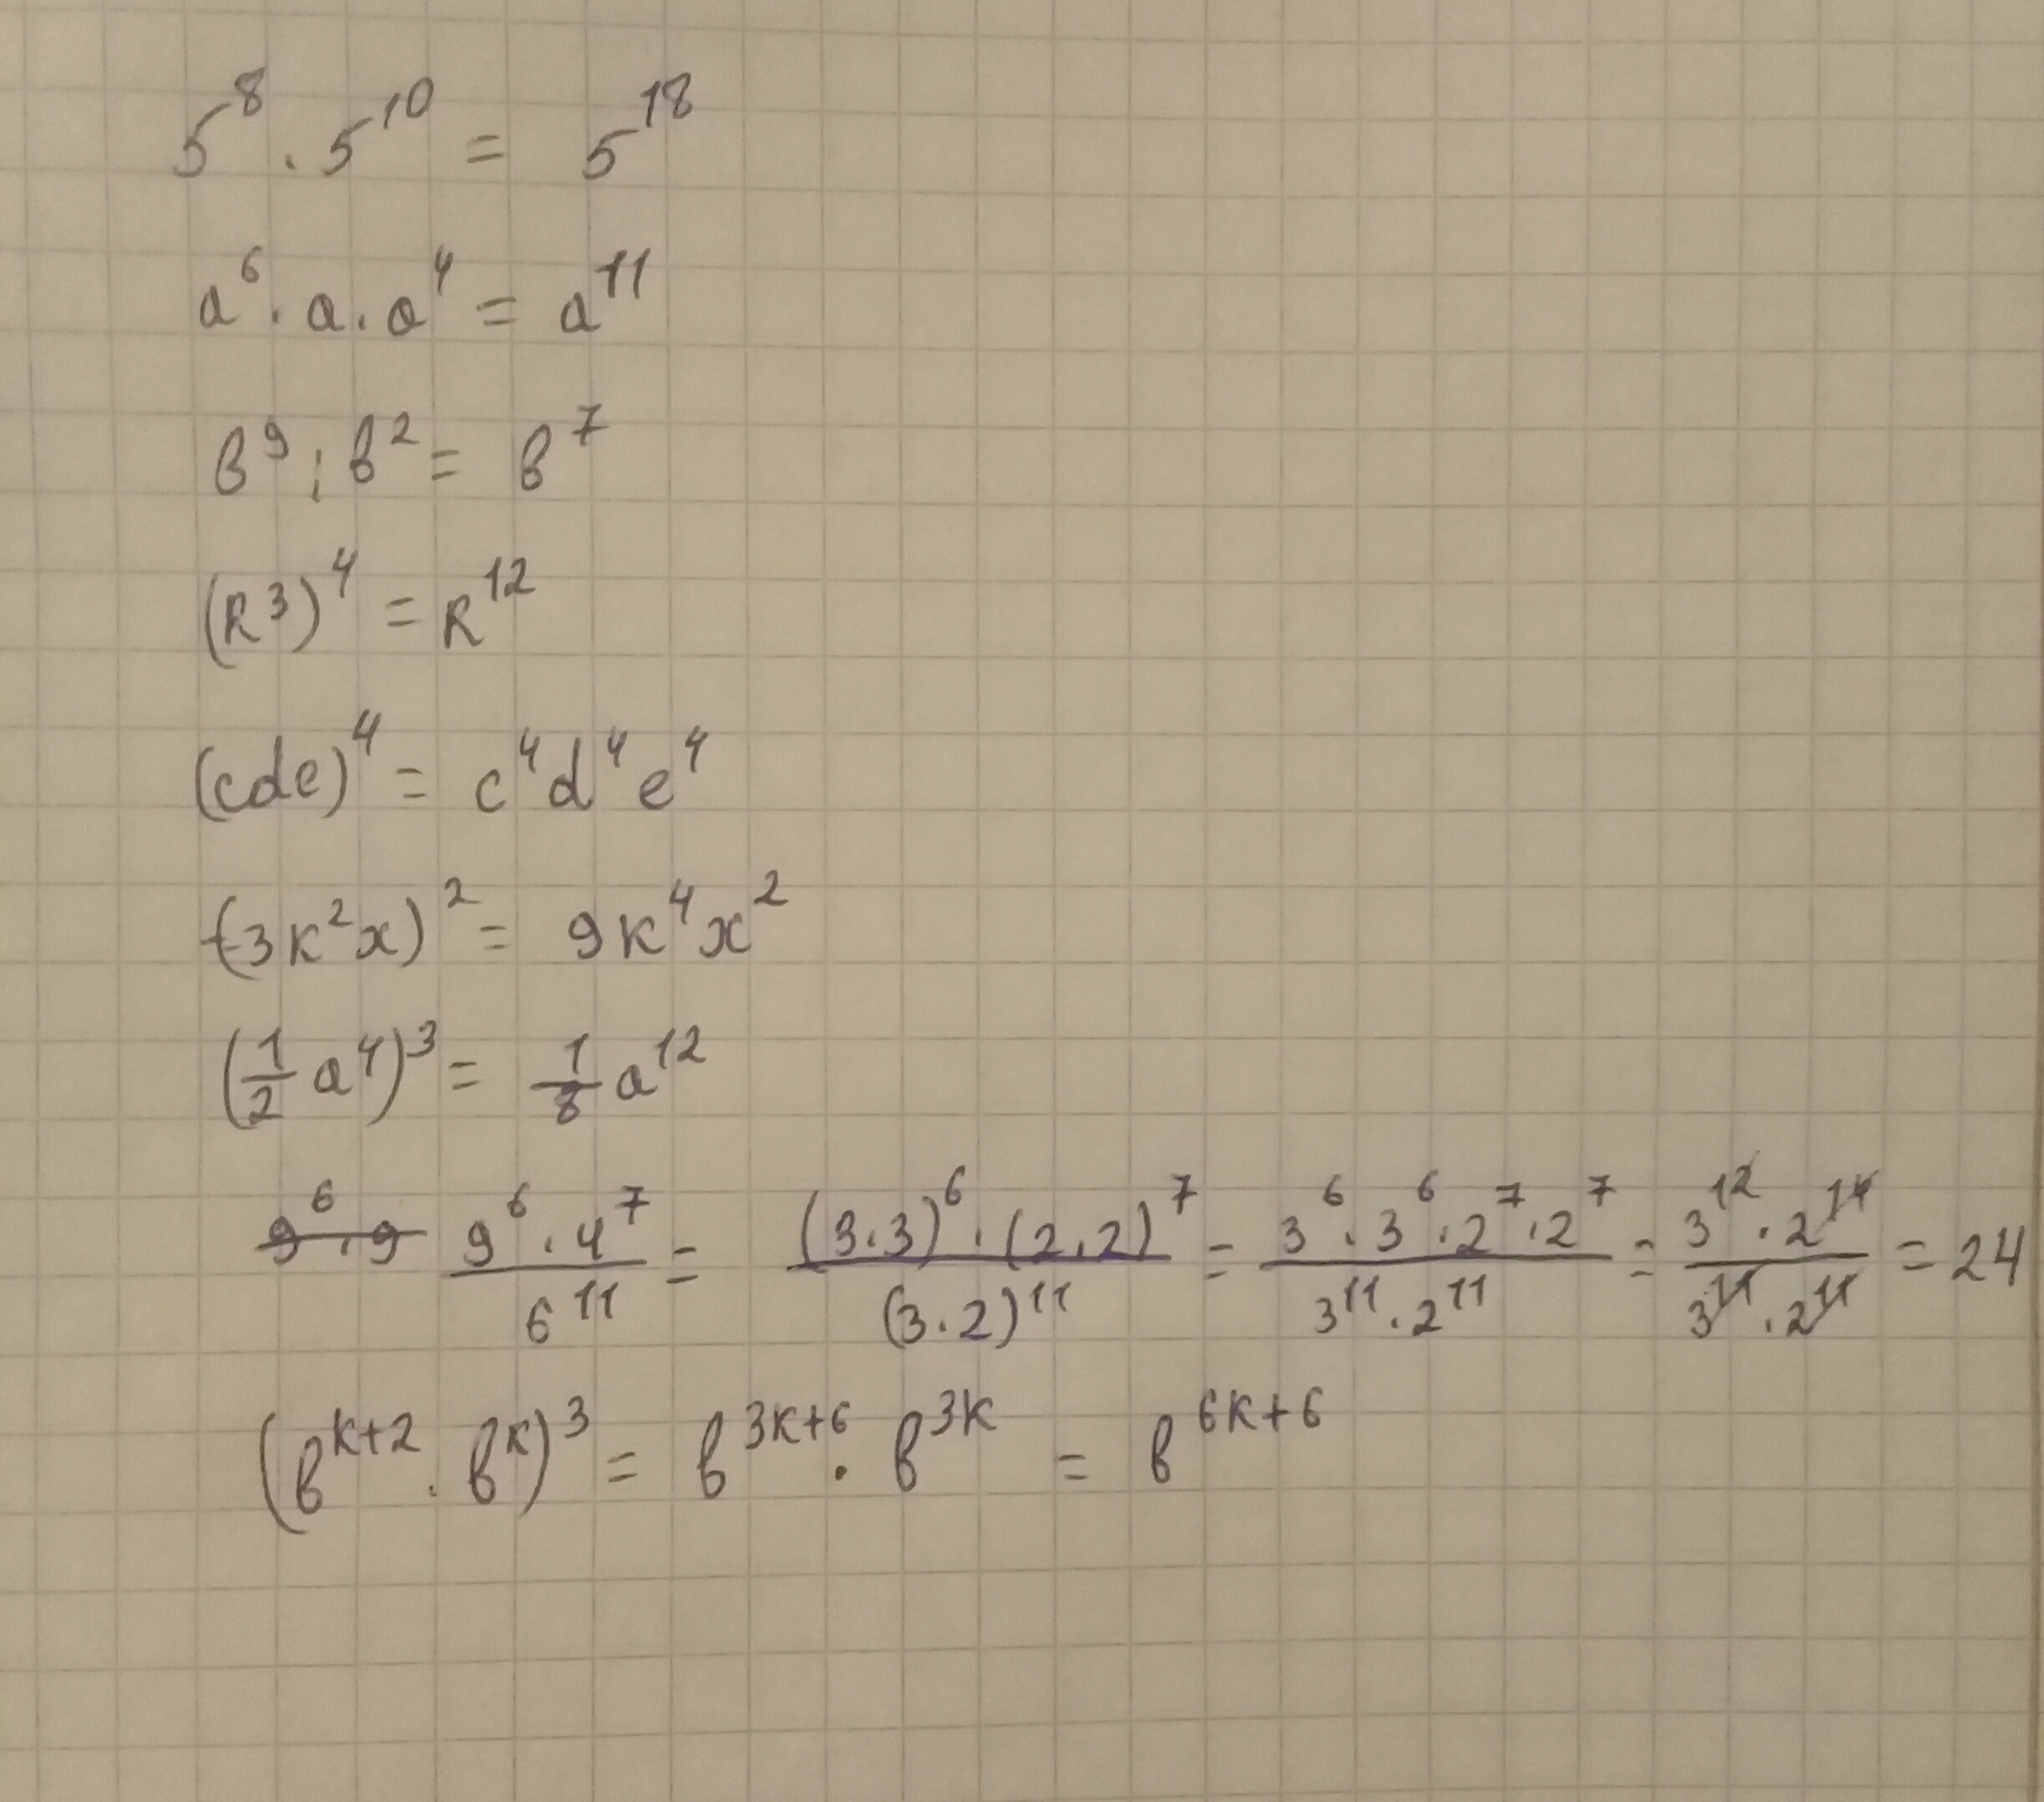 5⁸ . 5¹⁰ = 5¹⁸
a⁶ . a . a⁴ = a¹¹
в⁹ : в² = в⁷
(R³)⁴ = R¹²
(cde)⁴ = c⁴d⁴e⁴
(-3к²x)² = 9к⁴x²
(1/2 a⁴)³ = 1/8 a¹²
9⁶ . 9 (9⁶ . 4⁷)/6¹¹ = ((3.3)⁶ . (2.2)⁷)/(3.2)¹¹ = (3⁶ . 3⁶ . 2⁷ . 2⁷)/(3¹¹ . 2¹¹) = (3¹² . 2¹⁴)/(3¹¹ . 2¹¹) = 24
(в^(к+2) . в^к)³ = в^(3к+6) . в^(3к) = в^(6к+6)